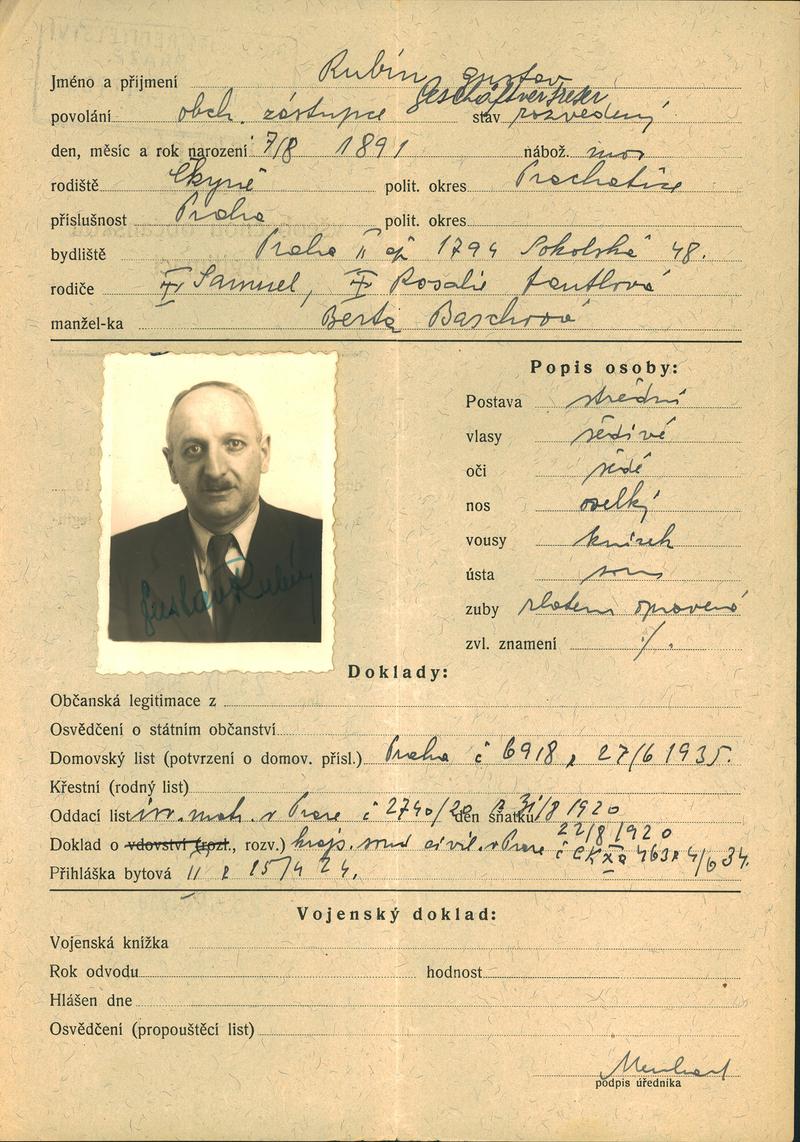 Jméno a příjmení Rubín Gustav
Geschäftvertreter
povolání obch. zástupce stav rozvedený
den, měsíc a rok narození 7/8 1891 nábož. mos
rodiště Čkyně polit. okres Prachatice
příslušnost Praha polit. okres
bydliště Praha II čp 1794 Sokolská 48.
rodiče Samuel, Rosalie Fantlová
manžel-ka Berta Baschová
Popis osoby:
Postava střední
vlasy šedivé
oči šedé
nos velký
vousy knírek
ústa
zuby zlatem opravené
zvl. znamení ./.
Gustav Rubín
Doklady:
Občanská legitimace z
Osvědčení o státním občanství
Domovský list (potvrzení o domov. přísl.) Praha č 6918 z 27/6 1935.
Křestní (rodný list)
Oddací list isr. mat. v Praze č 2740/20 den sňatku 31/8 1920
22/8 1920
Doklad o vdovství (rozl., rozv.) kraj. soud civil. v Praze č Ck 463 4/6 34.
Přihláška bytová II z 15/4 24.
Vojenský doklad:
Vojenská knížka
Rok odvodu hodnost
Hlášen dne
Osvědčení (propouštěcí list)
podpis úředníka